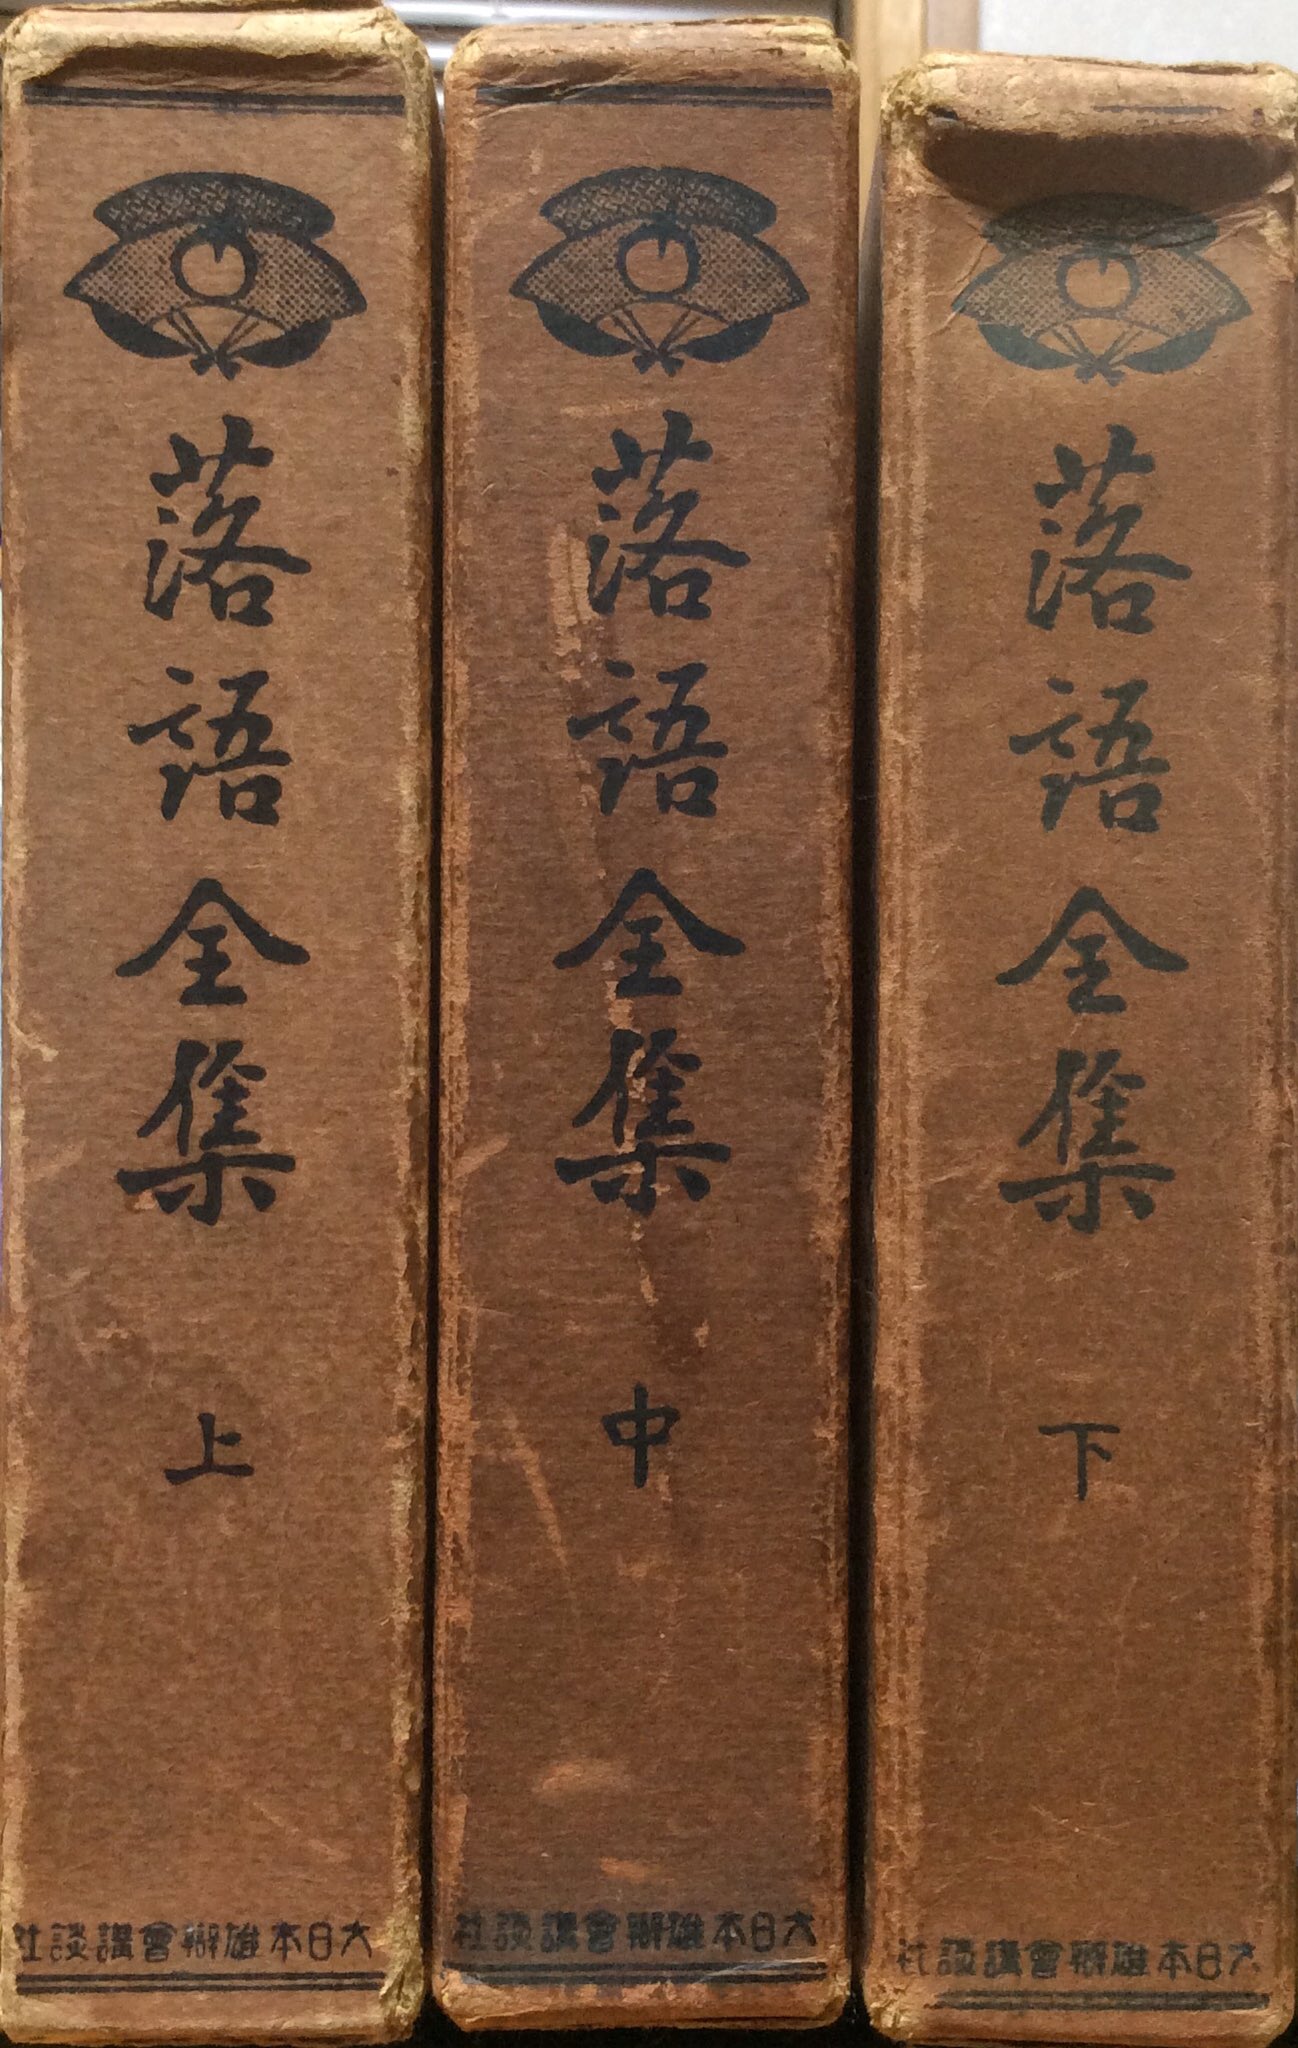 落語全集 上
大日本雄辯會講談社
落語全集 中
大日本雄辯會講談社
落語全集 下
大日本雄辯會講談社